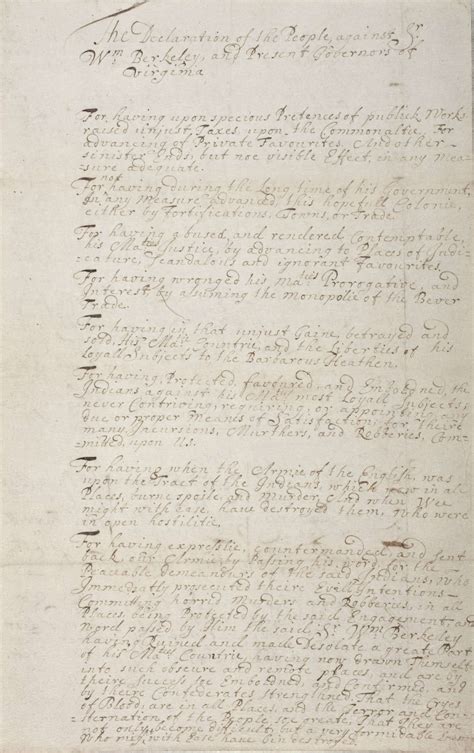 The Declaration of the People, against Sr
Wm Berkeley, and Present Governors of
Virginia
For having upon specious Pretences of publick Works
raised unjust Taxes, upon the Commonaltie, For
advancing of Private Favourites And other
sinister Ends, but noe visible Effect, in any Mea
sure adequate.
not
For having during the Long time of his Government
in any Measure Advanced this hopefull Colonie,
either by fortifications, Towns, or Trade.
For having abused, and rendered Contemptable,
his Maties Justice, by advancing to Places of Judi-
cature, scandalous and ignorant favourites
For having wronged his Maties Prerogative, and
Interest by assuming the monopolie of the Bever
Trade.
For having in that unjust Gaine, betrayed and
sold, His Maties Countrie, and the Liberties of his
Loyall Subjects to the Barbarous Heathen.
For having, Protected, favoured, and Emboldned, the
Indians against his Maties most Loyall Subjects,
never Contriving, requiring, or appointing any
due or proper Means of Satisfaction, for theire
many Incursions, Murthers, and Robberies, Com-
mitted upon Us.
For having when the Armie of the English, was
upon the Tract of the Indians, which now in all
Places, burne spoile, and Murder, And when Wee
might with ease, have destroyed them, who were
in open hostilitie.
For having expresslie, countermanded, and sent
back, our Armie by Passing his word, for the
Peaceable demeanours of the said Indians, Who
Immediatly prosecuted theire Evill Intentions
Committing horrid Murders and Robberies, in all
Places being Protected by the said Engagement, and
Word passed by Him the said Sr Wm Berkeley
having Ruined and made Desolate a great Part
of his Maties Countrie, having now drawn Themselves
into such obscure and remote places, and are by
theire success soe Emboldned, and Confirmed, and
by theire Confederates strengthned, That the Cryes
of Blood, are in all Places, and the Terror and Con-
sternation, of the People soe great, That they are
not only become difficult, but a very formidable Enemy
Who might with Ease have been destroyed